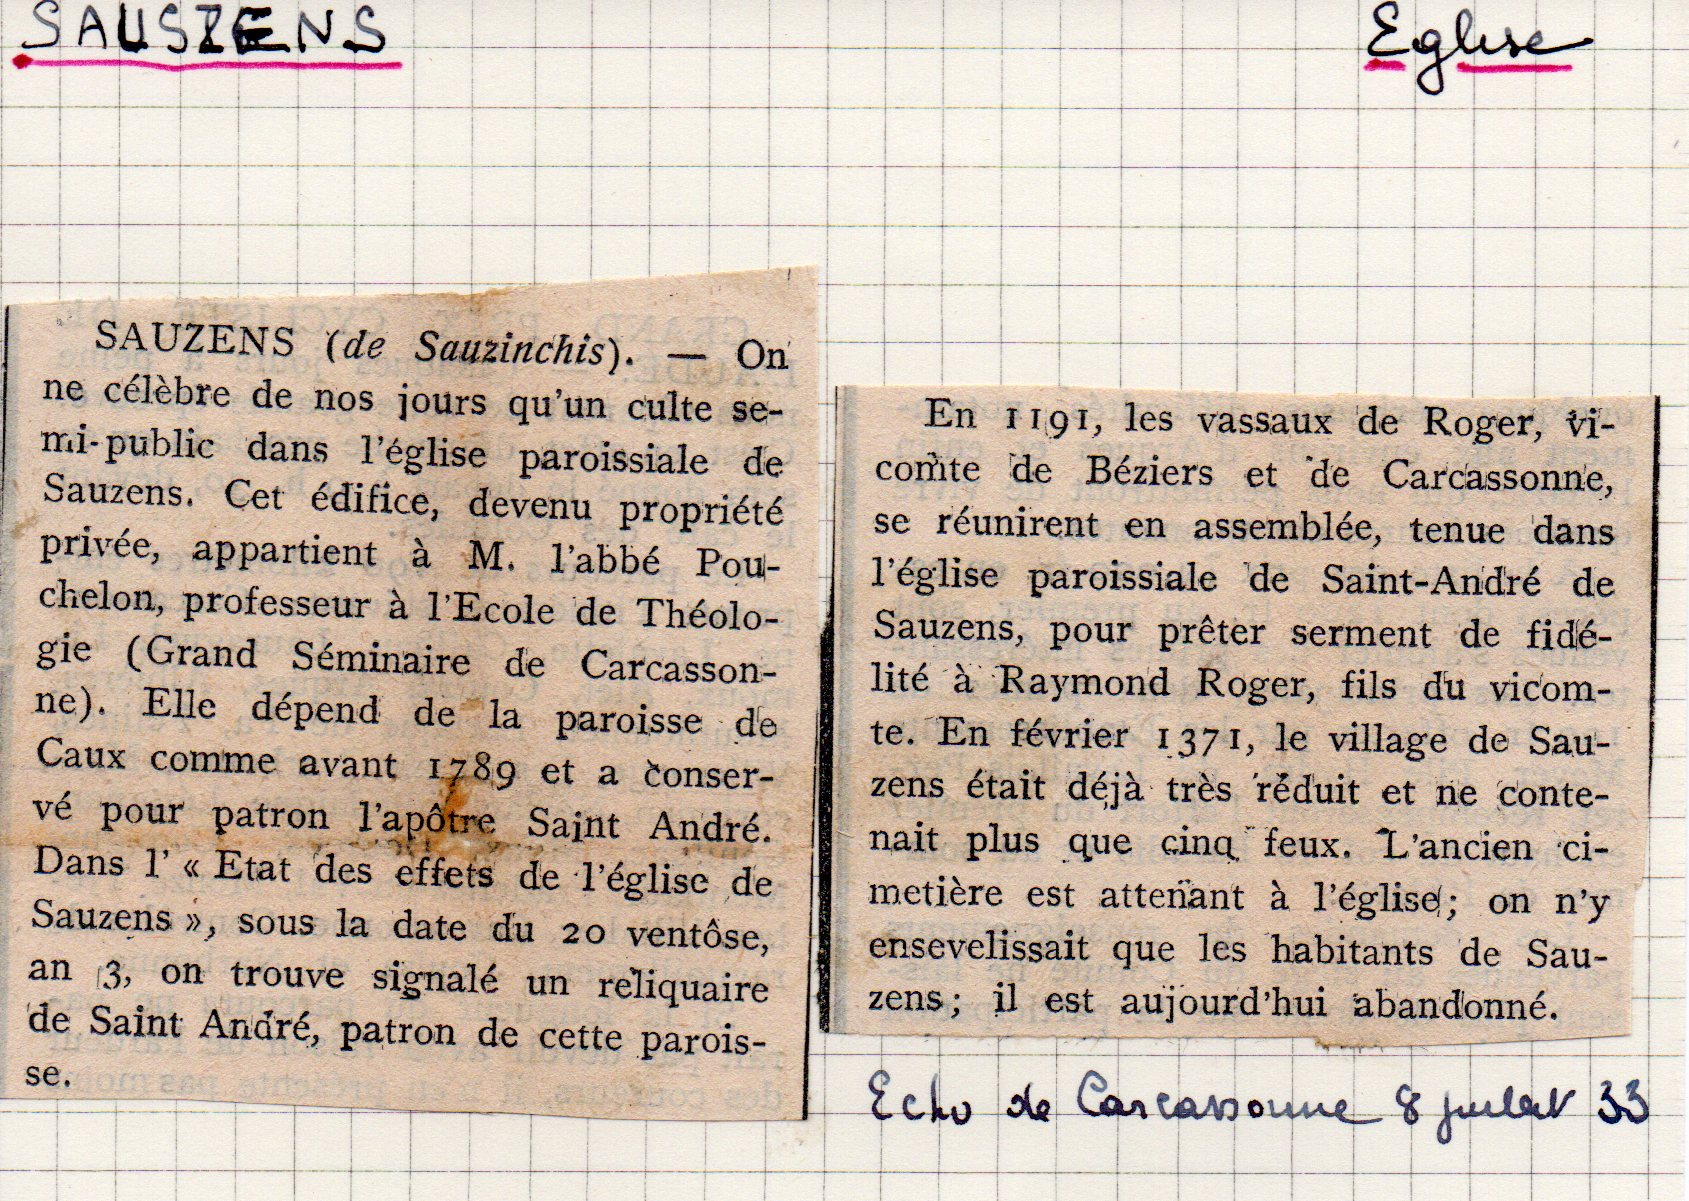 SAUSZENS
Eglise
SAUZENS (de Sauzinchis). — On
ne célèbre de nos jours qu'un culte se-
mi-public dans l'église paroissiale de
Sauzens. Cet édifice, devenu propriété
privée, appartient à M. l'abbé Pou-
chelon, professeur à l'Ecole de Théolo-
gie (Grand Séminaire de Carcasson-
ne). Elle dépend de la paroisse de
Caux comme avant 1789 et a conser-
vé pour patron l'apôtre Saint André.
Dans l' « Etat des effets de l'église de
Sauzens », sous la date du 20 ventôse,
an 3, on trouve signalé un reliquaire
de Saint André, patron de cette parois-
se.
En 1191, les vassaux de Roger, vi-
comte de Béziers et de Carcassonne,
se réunirent en assemblée, tenue dans
l'église paroissiale de Saint-André de
Sauzens, pour prêter serment de fidé-
lité à Raymond Roger, fils du vicom-
te. En février 1371, le village de Sau-
zens était déjà très réduit et ne conte-
nait plus que cinq feux. L'ancien ci-
metière est attenant à l'église; on n'y
ensevelissait que les habitants de Sau-
zens; il est aujourd'hui abandonné.
Echo de Carcassonne 8 juillet 33